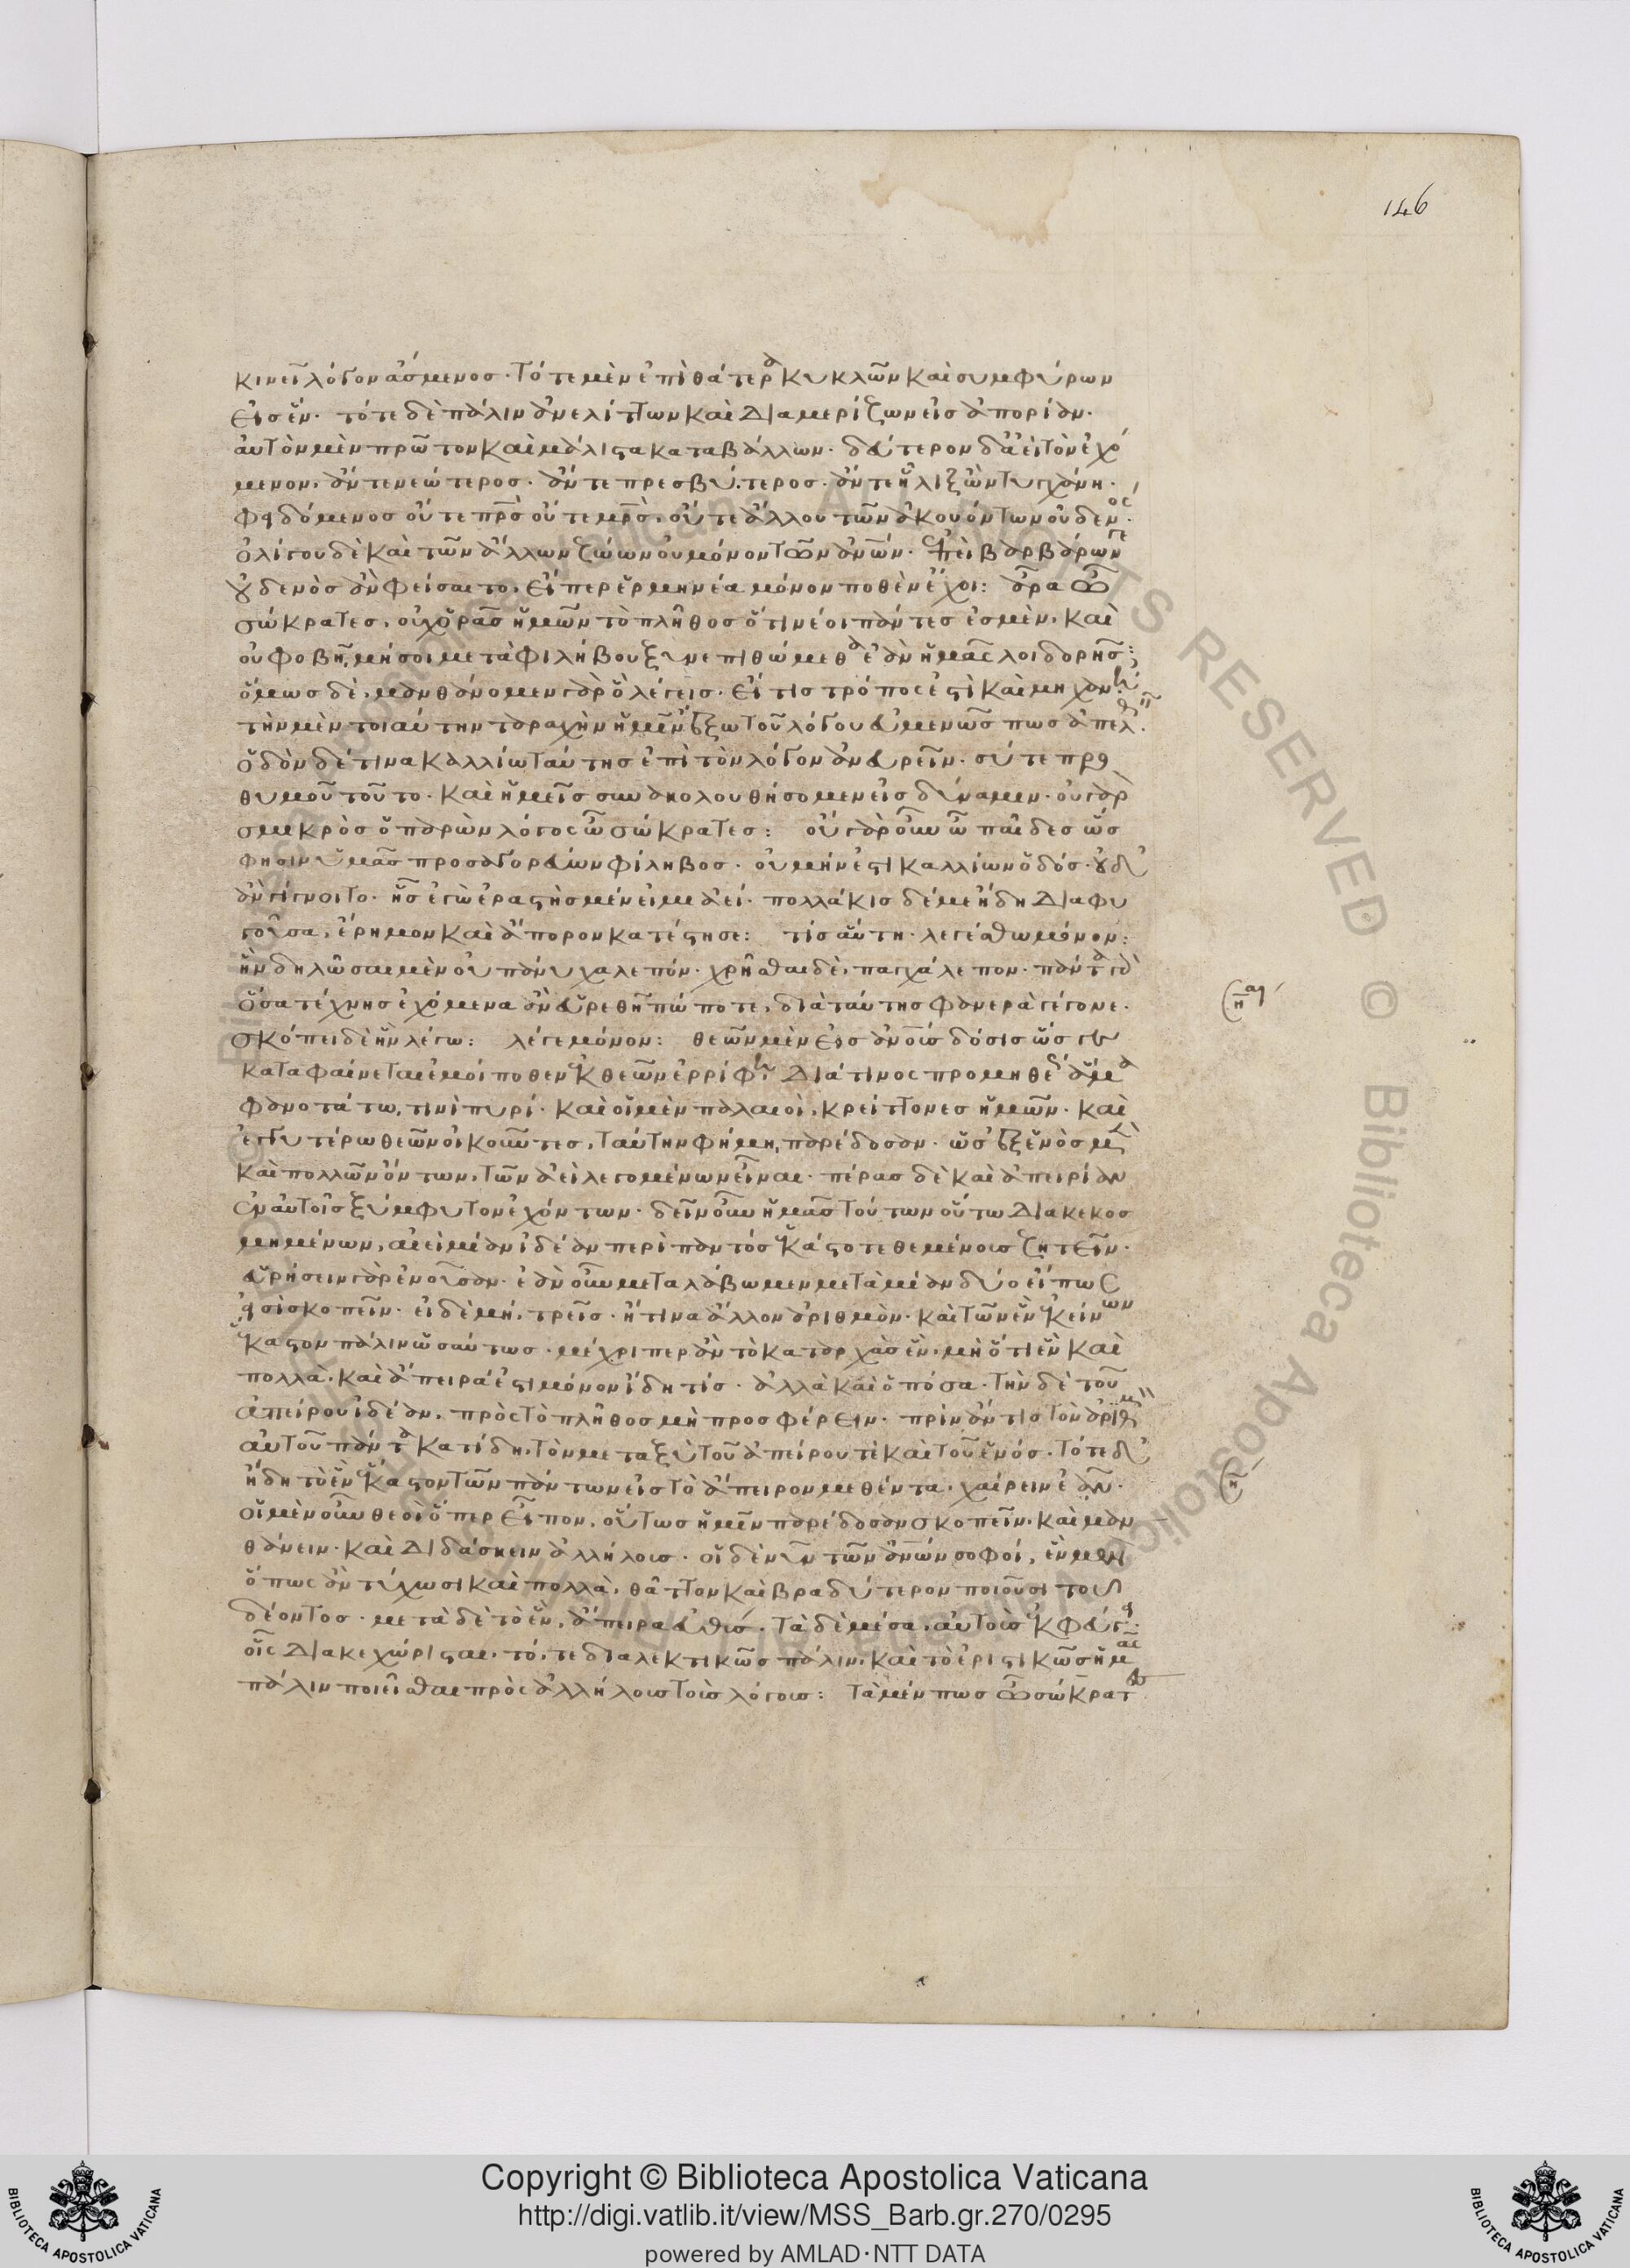 146
κινεῖ λόγον ἄσμενος· τότε μὲν ἐπὶ θάτερα κυκλῶν καὶ συμφύρων
εἰς ἕν· τότε δὲ πάλιν ἀνελίττων καὶ διαμερίζων εἰς ἀπορίαν·
αὑτὸν μὲν πρῶτον καὶ μάλιστα καταβάλλων· δεύτερον δ' ἀεὶ τὸν ἐχό
μενον, ἄν τε νεώτερος· ἄν τε πρεσβύτερος· ἄν τε ἧλιξ ὢν τυγχάνῃ·
φειδόμενος οὔτε πρς οὔτε μρς, οὔτε ἄλλου τῶν ἀκουόντων οὐδενός·
ὀλίγου δὲ καὶ τῶν ἄλλων ζώων οὐ μόνον τῶν ἀνων· ἐπεὶ βαρβάρων γε
οὐδενὸς ἂν φείσαιτο, εἴπερ ἑρμηνέα μόνον ποθὲν ἔχοι: ἆρα ὦ
σώκρατες, οὐχ ὁρᾶς ἡμῶν τὸ πλῆθος ὅτι νέοι πάντες ἐσμὲν, καὶ
οὐ φοβῆ, μή σοι μετὰ φιλήβου ξυνεπιθώμεθα ἐὰν ἡμᾶς λοιδορῆς;
ὅμως δὲ, μανθάνομεν γὰρ ὃ λέγεις· εἴ τις τρόπος ἐστὶ καὶ μηχανὴ
τὴν μὲν τοιαύτην ταραχὴν ἡμῖν ἔξω τοῦ λόγου εὐμενῶς πως ἀπελθεῖν·
ὁδὸν δέ τινα καλλίω ταύτης ἐπὶ τὸν λόγον ἀνευρεῖν· σύ τε προ
θυμοῦ τοῦτο· καὶ ἡμεῖς συνακολουθήσομεν εἰς δύναμιν· οὐ γὰρ
σμικρὸς ὁ παρὼν λόγος ὦ σώκρατες: οὐ γὰρ οὖν ὦ παῖδες ὥς
φησιν ὑμᾶς προσαγορεύων φίληβος· οὐ μὴν ἔστι καλλίων ὁδός· οὐδ'
ἂν γίγνοιτο· ἧς ἐγὼ ἐραστὴς μέν εἰμι ἀεί· πολλάκις δέ με ἤδη διαφυ
γοῦσα, ἔρημον καὶ ἄπορον κατέστησε: τίς αὕτη· λεγέσθω μόνον:
ἣν δηλῶσαι μὲν οὐ πάνυ χαλεπόν· χρῆσθαι δὲ, παγχάλεπον· πάντα γὰρ
ὅσα τέχνης ἐχόμενα ἀνευρεθῆ πώποτε, διὰ ταύτης φανερὰ γέγονε·
σκόπει δὲ ἣν λέγω: λέγε μόνον: θεῶν μὲν εἰς ἀνους δόσις ὥς γε
καταφαίνεται ἐμοί ποθεν ἐκ θεῶν ἐρρίφη διά τινος προμηθέως ἅμα
φανοτάτω, τινὶ πυρί· καὶ οἱ μὲν παλαιοὶ, κρείττονες ἡμῶν· καὶ
ἐγγυτέρω θεῶν οἰκοῦντες, ταύτην φήμην παρέδοσαν· ὡς ἐξ ἑνὸς μὲν
καὶ πολλῶν ὄντων, τῶν ἀεὶ λεγομένων εἶναι· πέρας δὲ καὶ ἀπειρίαν
ἐν αὑτοῖς ξύμφυτον ἐχόντων· δεῖν οὖν ἡμᾶς τούτων οὕτω διακεκοσ
μημένων, ἀεὶ μίαν ἰδέαν περὶ παντὸς ἑκάστοτε θεμένους ζητεῖν·
εὑρήσειν γὰρ ἐνοῦσαν· ἐὰν οὖν μεταλάβωμεν μετὰ μίαν δύο εἴ πως
εἰσὶ σκοπεῖν· εἰ δὲ μή, τρεῖς· ἤ τινα ἄλλον ἀριθμὸν· καὶ τῶν ἓν ἐκείνων
ἕκαστον πάλιν ὡσαύτως· μέχρι περ ἂν τὸ κατ' ἀρχὰς ἓν, μὴ ὅτι ἓν καὶ
πολλὰ, καὶ ἄπειρά ἐστι μόνον ἴδη τίς· ἀλλὰ καὶ ὁπόσα· τὴν δὲ τοῦ
ἀπείρου ἰδέαν, πρὸς τὸ πλῆθος μὴ προσφέρειν· πρὶν ἄν τις τὸν ἀριθμὸν
αὐτοῦ πάντα κατίδη, τὸν μεταξὺ τοῦ ἀπείρου τὲ καὶ τοῦ ἑνός· τότε δ'
ἤδη τὸ ἓν ἕκαστον τῶν πάντων εἰς τὸ ἄπειρον μεθέντα, χαίρειν ἐᾶν·
οἱ μὲν οὖν θεοὶ ὅπερ εἶπον, οὕτως ἡμῖν παρέδοσαν σκοπεῖν, καὶ μαν
θάνειν· καὶ διδάσκειν ἀλλήλους· οἱ δὲ νῦν τῶν ἀνων σοφοί, ἓν μὲν
ὅπως ἂν τύχωσι καὶ πολλὰ, θᾶττον καὶ βραδύτερον ποιοῦσι τοῦ
δέοντος· μετὰ δὲ τὸ ἓν, ἄπειρα εὐθύς· τὰ δὲ μέσα, αὐτοὺς ἐκφεύγει·
οἷς διακεχώρισται, τό, τε διαλεκτικῶς πάλιν, καὶ τὸ ἐριστικῶς ἡμᾶς
πάλιν ποιεῖσθαι πρὸς ἀλλήλους τοὺς λόγους: τὰ μέν πως ὦ σώκρατες
Copyright © Biblioteca Apostolica Vaticana
http://digi.vatlib.it/view/MSS_Barb.gr.270/0295
powered by AMLAD·NTT DATA